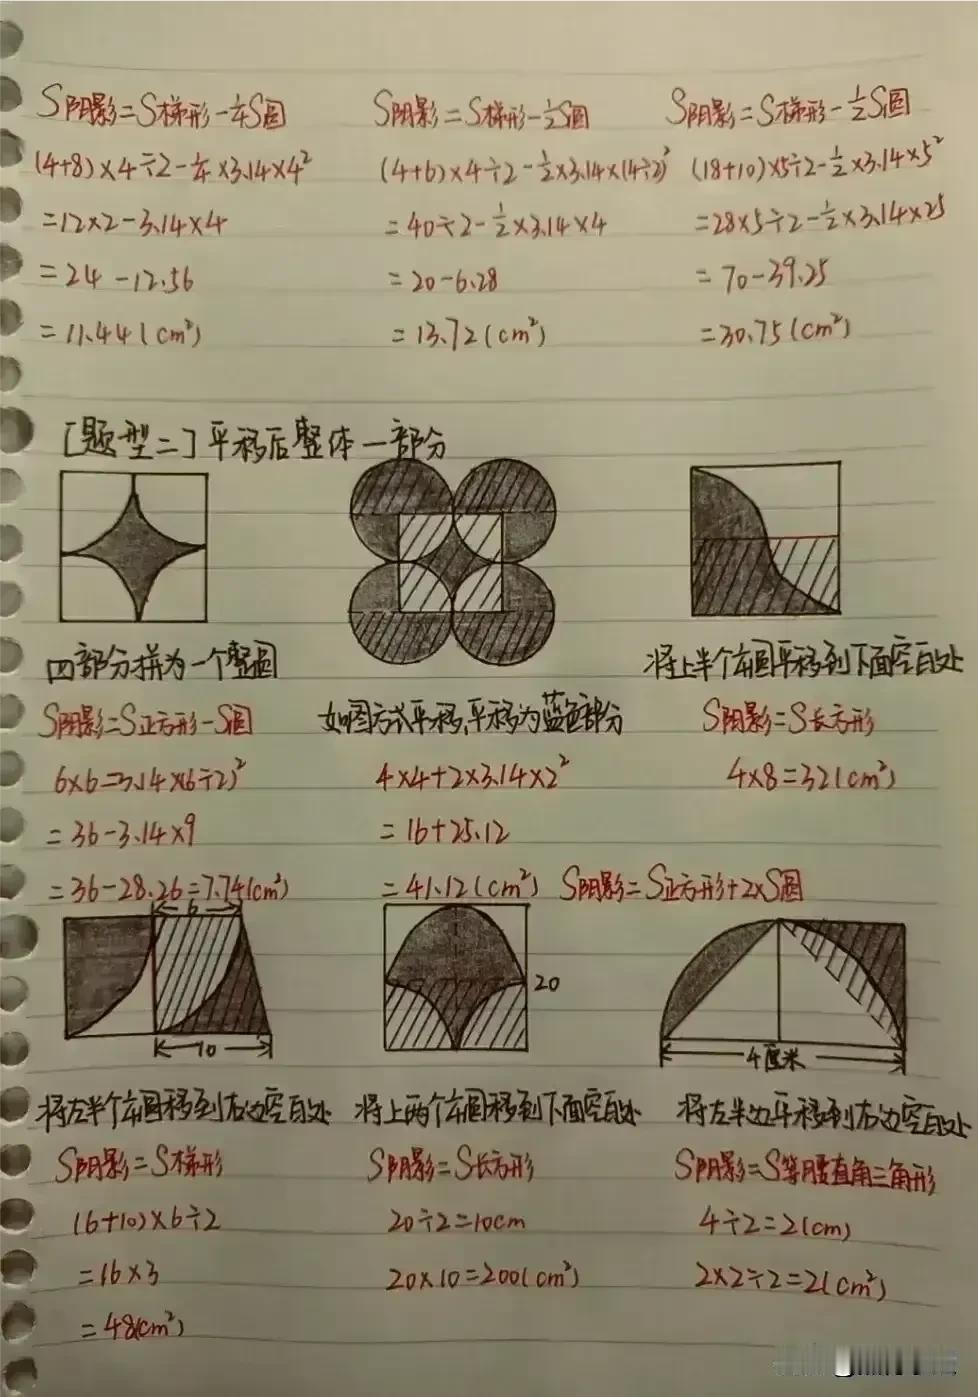 S阴影=S梯形-¼S圆
(4+8)×4÷2-¼×3.14×4²
=12×2-3.14×4
=24-12.56
=11.44(cm²)
S阴影=S梯形-½S圆
(4+6)×4÷2-½×3.14×(4÷2)²
=40÷2-½×3.14×4
=20-6.28
=13.72(cm²)
S阴影=S梯形-½S圆
(18+10)×5÷2-½×3.14×5²
=28×5÷2-½×3.14×25
=70-39.25
=30.75(cm²)
[题型二]平移后整体一部分
四部分拼为一个整圆
S阴影=S正方形-S圆
6×6=3.14×(6÷2)²
=36-3.14×9
=36-28.26=7.74(cm²)
如图方式平移,平移为蓝色部分
4×4+2×3.14×2²
=16+25.12
=41.12(cm²) S阴影=S正方形+2×S圆
将上半个¼圆平移到下面空白处
S阴影=S长方形
4×8=32(cm²)
6
10
将左半个¼圆移到右边空白处
S阴影=S梯形
(6+10)×6÷2
=16×3
=48(cm²)
20
将上两个¼圆移到下面空白处
S阴影=S长方形
20÷2=10cm
20×10=200(cm²)
4厘米
将左半边平移到右边空白处
S阴影=S等腰直角三角形
4÷2=2(cm)
2×2÷2=2(cm²)